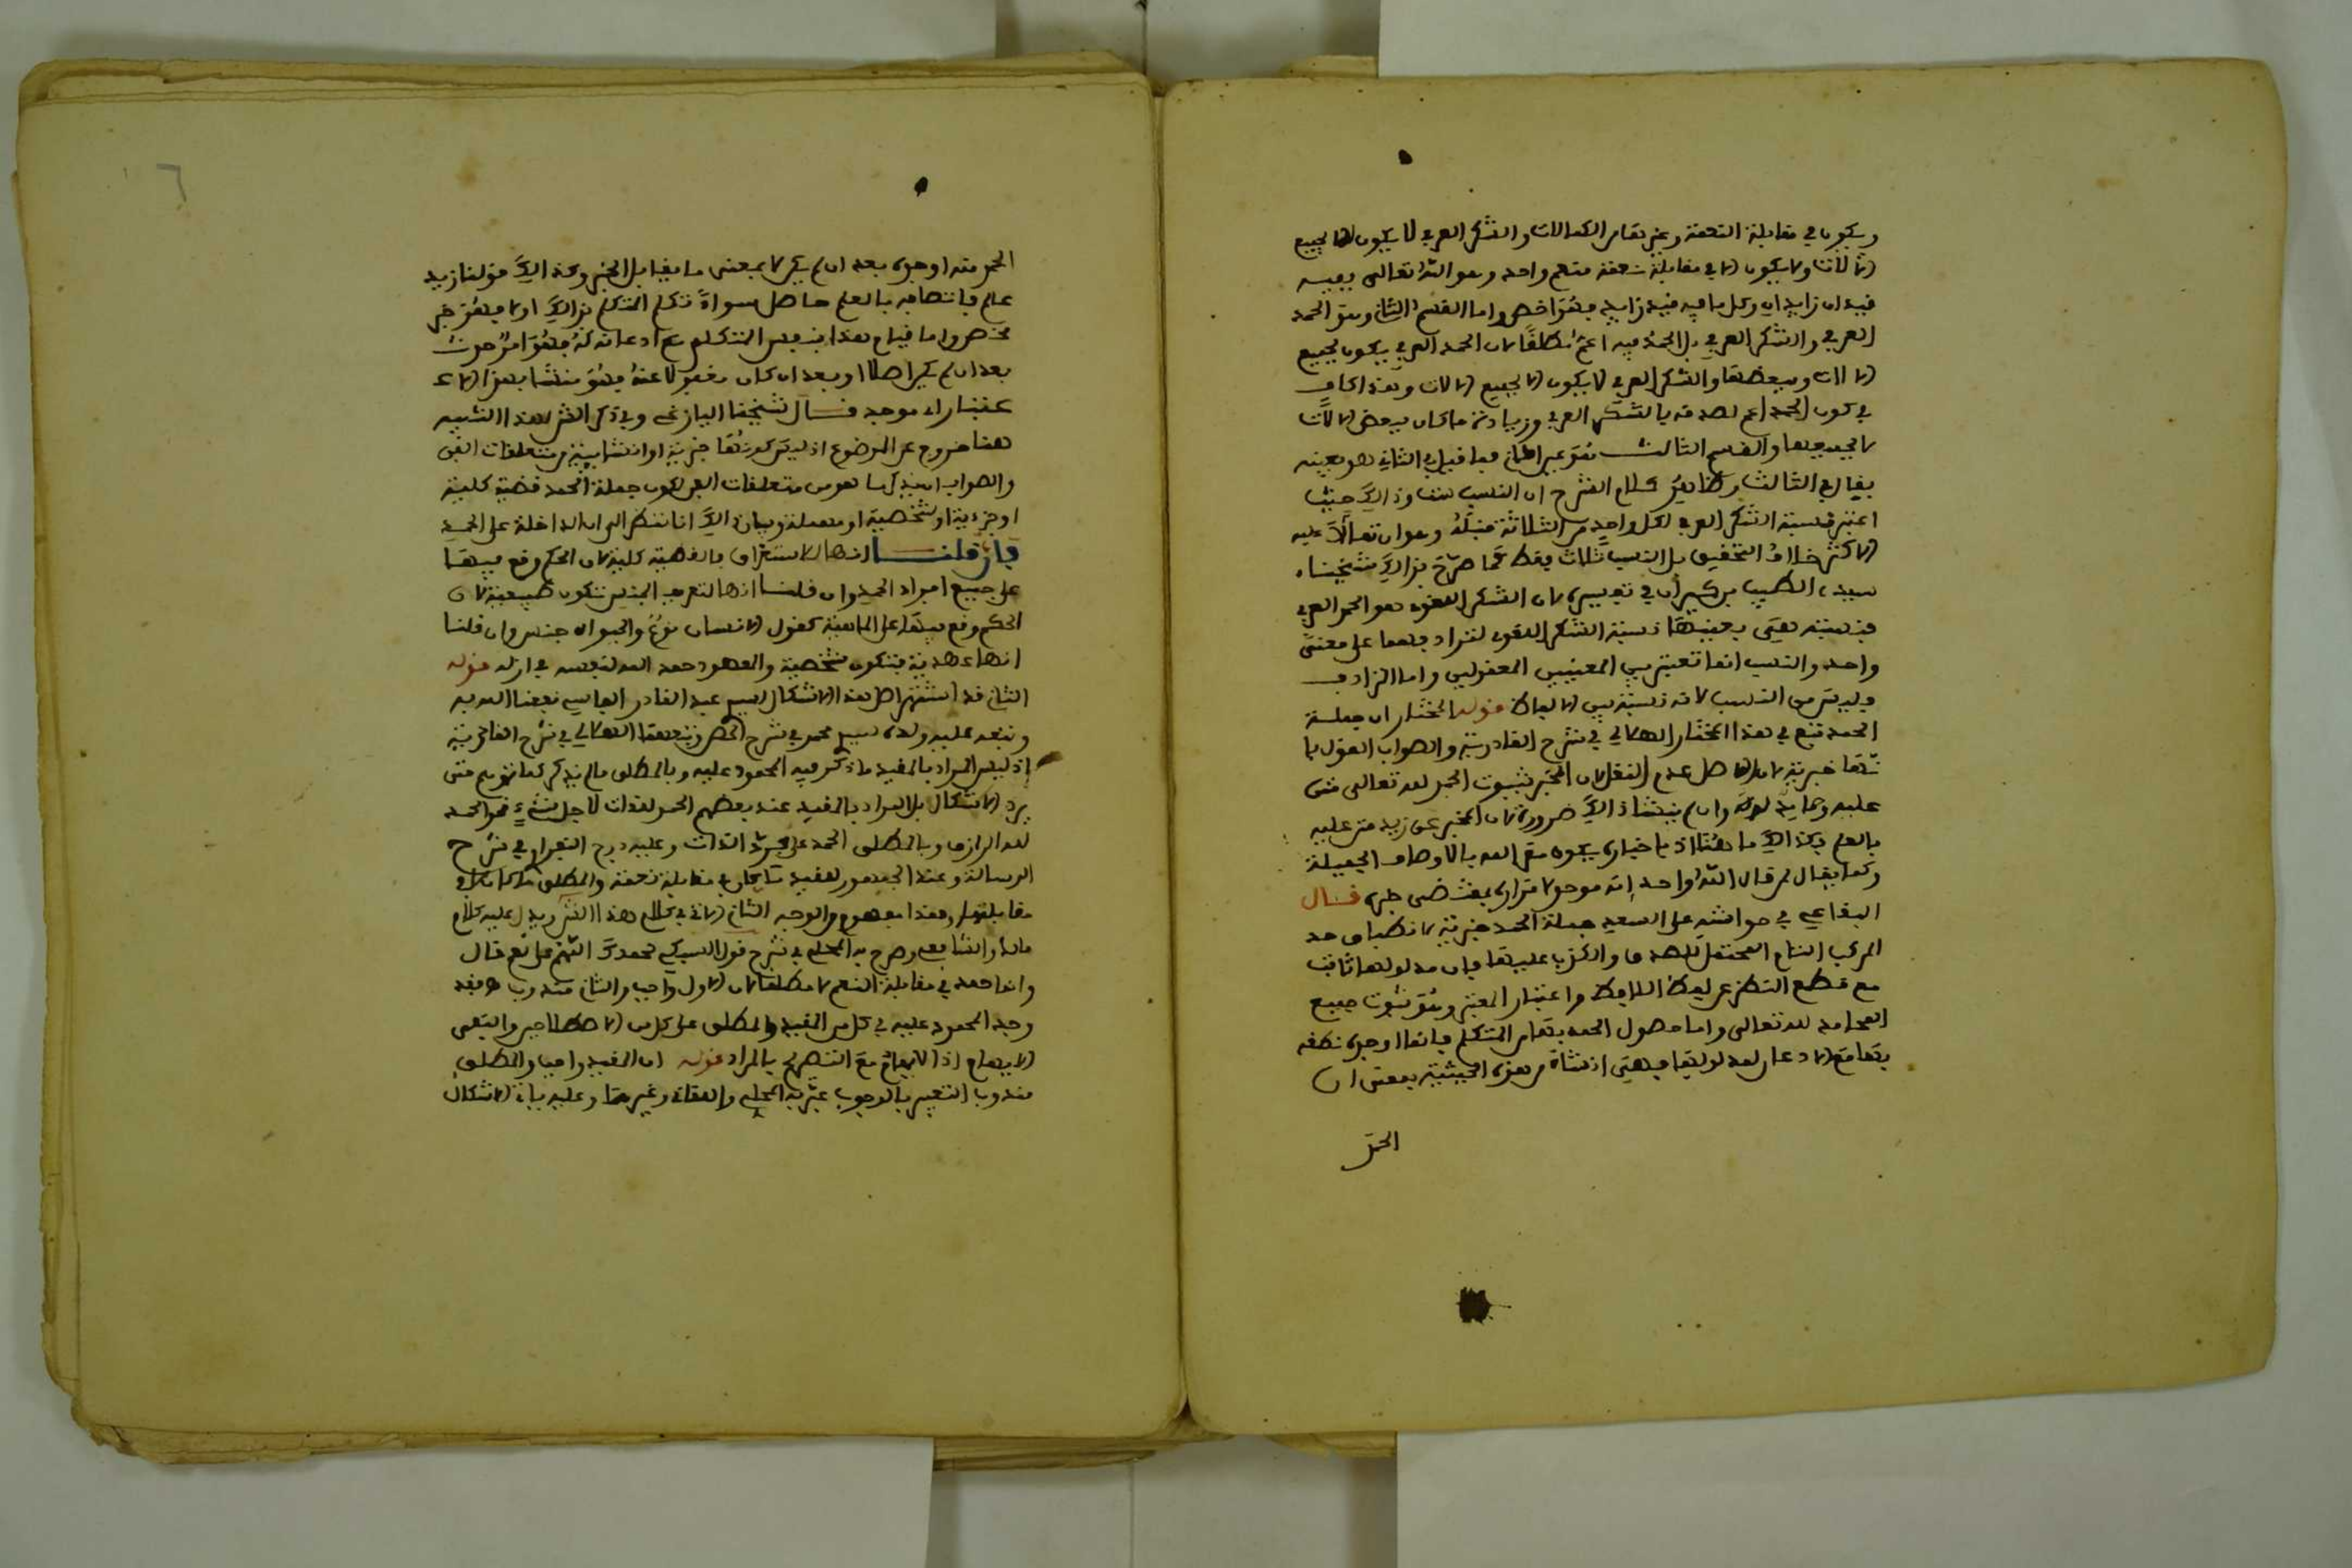 ويكون في مقابلة النعمة وغير تمام الكمالات والشكر العرفي لا يكون الا بجميع
الآلات ولا يكون الا في مقابلة نعمة منعم واحد وهو الله تعالى ففيه
قيدان زايدان وكل ما فيه قيد زايد فهو اخص واما القسم الثاني وهو الحمد
العرفي والشكر العرفي بل الحمد فيه اعم مطلقا لان الحمد العرفي يكون بجميع
الالات وببعضها والشكر العرفي لا يكون الا بجميع الالات وهذا كاف
في كون الحمد اعم لصدقه بالشكر العرفي وزيادة ما كان ببعض الالات
لا بجميعها والقسم الثالث هو عين الثاني فما قيل في الثاني هو بعينه
يقال في الثالث وظاهر كلام الشرح ان النسب ست وذالك حيث
اعتبر نسبة الشكر العرفي لكل واحد من الثلاثة قبله وهو ان تمالأ عليه
الاكثر خلاف التحقيق بل النسب ثلاث فقط كما صرح بذالك شيخنا
سيدي الطيب بن كيران في تفسيره لان الشكر اللغوي هو الحمد العرفي
فنسبته هي بعينها نسبة الشكر اللغوي لترادفهما على معنى
واحد والنسب انما تعتبر بين المعنيين المعقولين واما الترادف
فليس من النسب لانه نسبة بين الالفاظ قوله المختار ان جملة
الحمد تبع في هذا المختار الهلالي في شرح القادرية والصواب القول با
نها خبرية لان الاصل عدم النقل لان المخبر بثبوت الحمد لله تعالى مثن
عليه وحامد له وان لم ينشا ذالك ضرورة ان المخبر عن زيد مثن عليه
بالعلم فكذالك ما هنا اذ باخباره يكون متصفا لله بالاوصاف الجميلة
وكما يقال لمن قال الله واحد إنه موحد لا مزار بمقتضى خبره قال
البقاعي في حواشيه على السعد جملة الحمد خبرية لانطباق حد
المركب التام المحتمل للصدق والكذب عليها فان مدلولها ثابت
مع قطع النظر عن لفظ اللافظ واعتبار المعتبر وهو ثبوت جميع
المحامد لله تعالى واما حصول الحمد بها من المتكلم فانما اوجده نطقه
بها مع الاذعان لمدلولها فهي انشاء من هذه الحيثية بمعنى ان
الحمد
٦
الحمد منه اوجده بعد ان لم يكن لا بمعنى ما يقابل الخبر وكذالك قولنا زيد
عالم فاتصافه بالعلم حاصل سواء تكلم المتكلم بذالك او لا فهو خبر
محض واما قيام هذا بنفس المتكلم مع اذعانه له فهو امر حدث
بعد ان لم يكن اصلا او بعد ان كان مغفولا عنه فهو منشا بهذا الا
عتبار اي موجد قال شيخنا اليازغي وفي ذكر الشرح لهذا التنبيه
هنا خروج عن الموضوع اذ ليس كونها خبرية او انشايية من متعلقات الفن
والصواب ابداله بما هو من متعلقات الفن ككون جملة الحمد قضية كلية
او جزءية او شخصية او مهملة وبيان ذالك انا ننظر الى ال الداخلة على الحمد
فان قلنا انها للاستغراق فالقضية كلية لان الحكم وقع فيها
على جميع افراد الحمد وان قلنا انها لتعريف الجنس تكون طبيعية لان
الحكم وقع فيها على الماهية كقول الانسان نوع والحيوان جنس وان قلنا
انها عهدية فتكون شخصية والمعهود حمد الله لنفسه في ازله قوله
الثاني قد استشهر اصل هذا الاشكال لسيدي عبد القادر الفاسي نفعنا الله به
وتبعه عليه ولده سيدي محمد في شرح الحصن وتبعهما الهلالي في شرح القادرية
إذ ليس المراد بالمقيد ما ذكر فيه المحمود عليه وبالمطلق ما لم يذكر كما توهم حتى
يرد الاشكال بل المراد بالمقيد عند بعضهم الحمد لذات لاجل شيء نحو الحمد
لله الرازق وبالمطلق الحمد على مجرد الذات وعليه درج النفراوي في شرح
الرسالة وعند الجمهور المقيد ما كان في مقابلة نعمة والمطلق ما كان لا في
مقابلتها وهذا مفهوم الوجه الثاني الاتي في كلام هذا الشرح ويدل عليه كلام
مالك والشافعي وصرح به المحلي في شرح قول السبكي نحمدك اللهم على نعم قال
وانما حمد في مقابلة النعم لا مطلقا لان الاول واجب والثاني مندوب فقد
وجد المحمود عليه في كل من المقيد والمطلق على كل من الاصطلاحين وانتفى
الايهام اذ لا ايهام مع التصريح بالمراد قوله ان المقيد واجب والمطلق
مندوب التعبير بالوجوب عبر به المحلي والقاني وغيرهما وعليه ياتي الاشكال